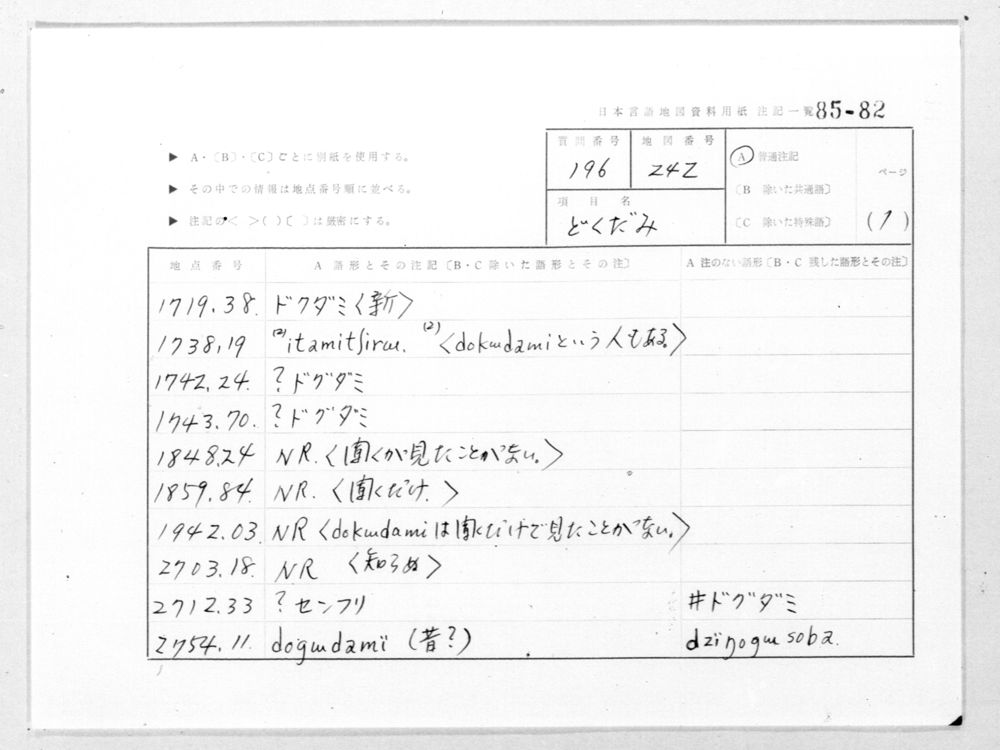 日本言語地図資料用紙 注記一覧 85-82
▶ A・〔B〕・〔C〕ごとに別紙を使用する。
▶ その中での情報は地点番号順に並べる。
▶ 注記の< >( )〔 〕は厳密にする。
質問番号 196
地図番号 242
項目名 どくだみ
Ⓐ 普通注記
〔B 除いた共通語〕
〔C 除いた特殊語〕
ページ (1)
地点番号 A 語形とその注記〔B・C 除いた語形とその注〕 A 注のない語形〔B・C 残した語形とその注〕
1719.38. ドクダミ〈新〉
1738.19 ⁽²⁾itamitʃirɯ. ⁽²⁾〈dokɯdamiという人もある。〉
1742.24. ?ドグダミ
1743.70. ?ドグダミ
1848.24 NR.〈聞くが見たことがない。〉
1859.84. NR.〈聞くだけ.〉
1942.03. NR〈dokɯdamiは聞くだけで見たことがない。〉
2703.18. NR 〈知らぬ〉
2712.33 ?センフリ #ドグダミ
2754.11. dogɯdamï (昔?) dzïŋogɯsoba.